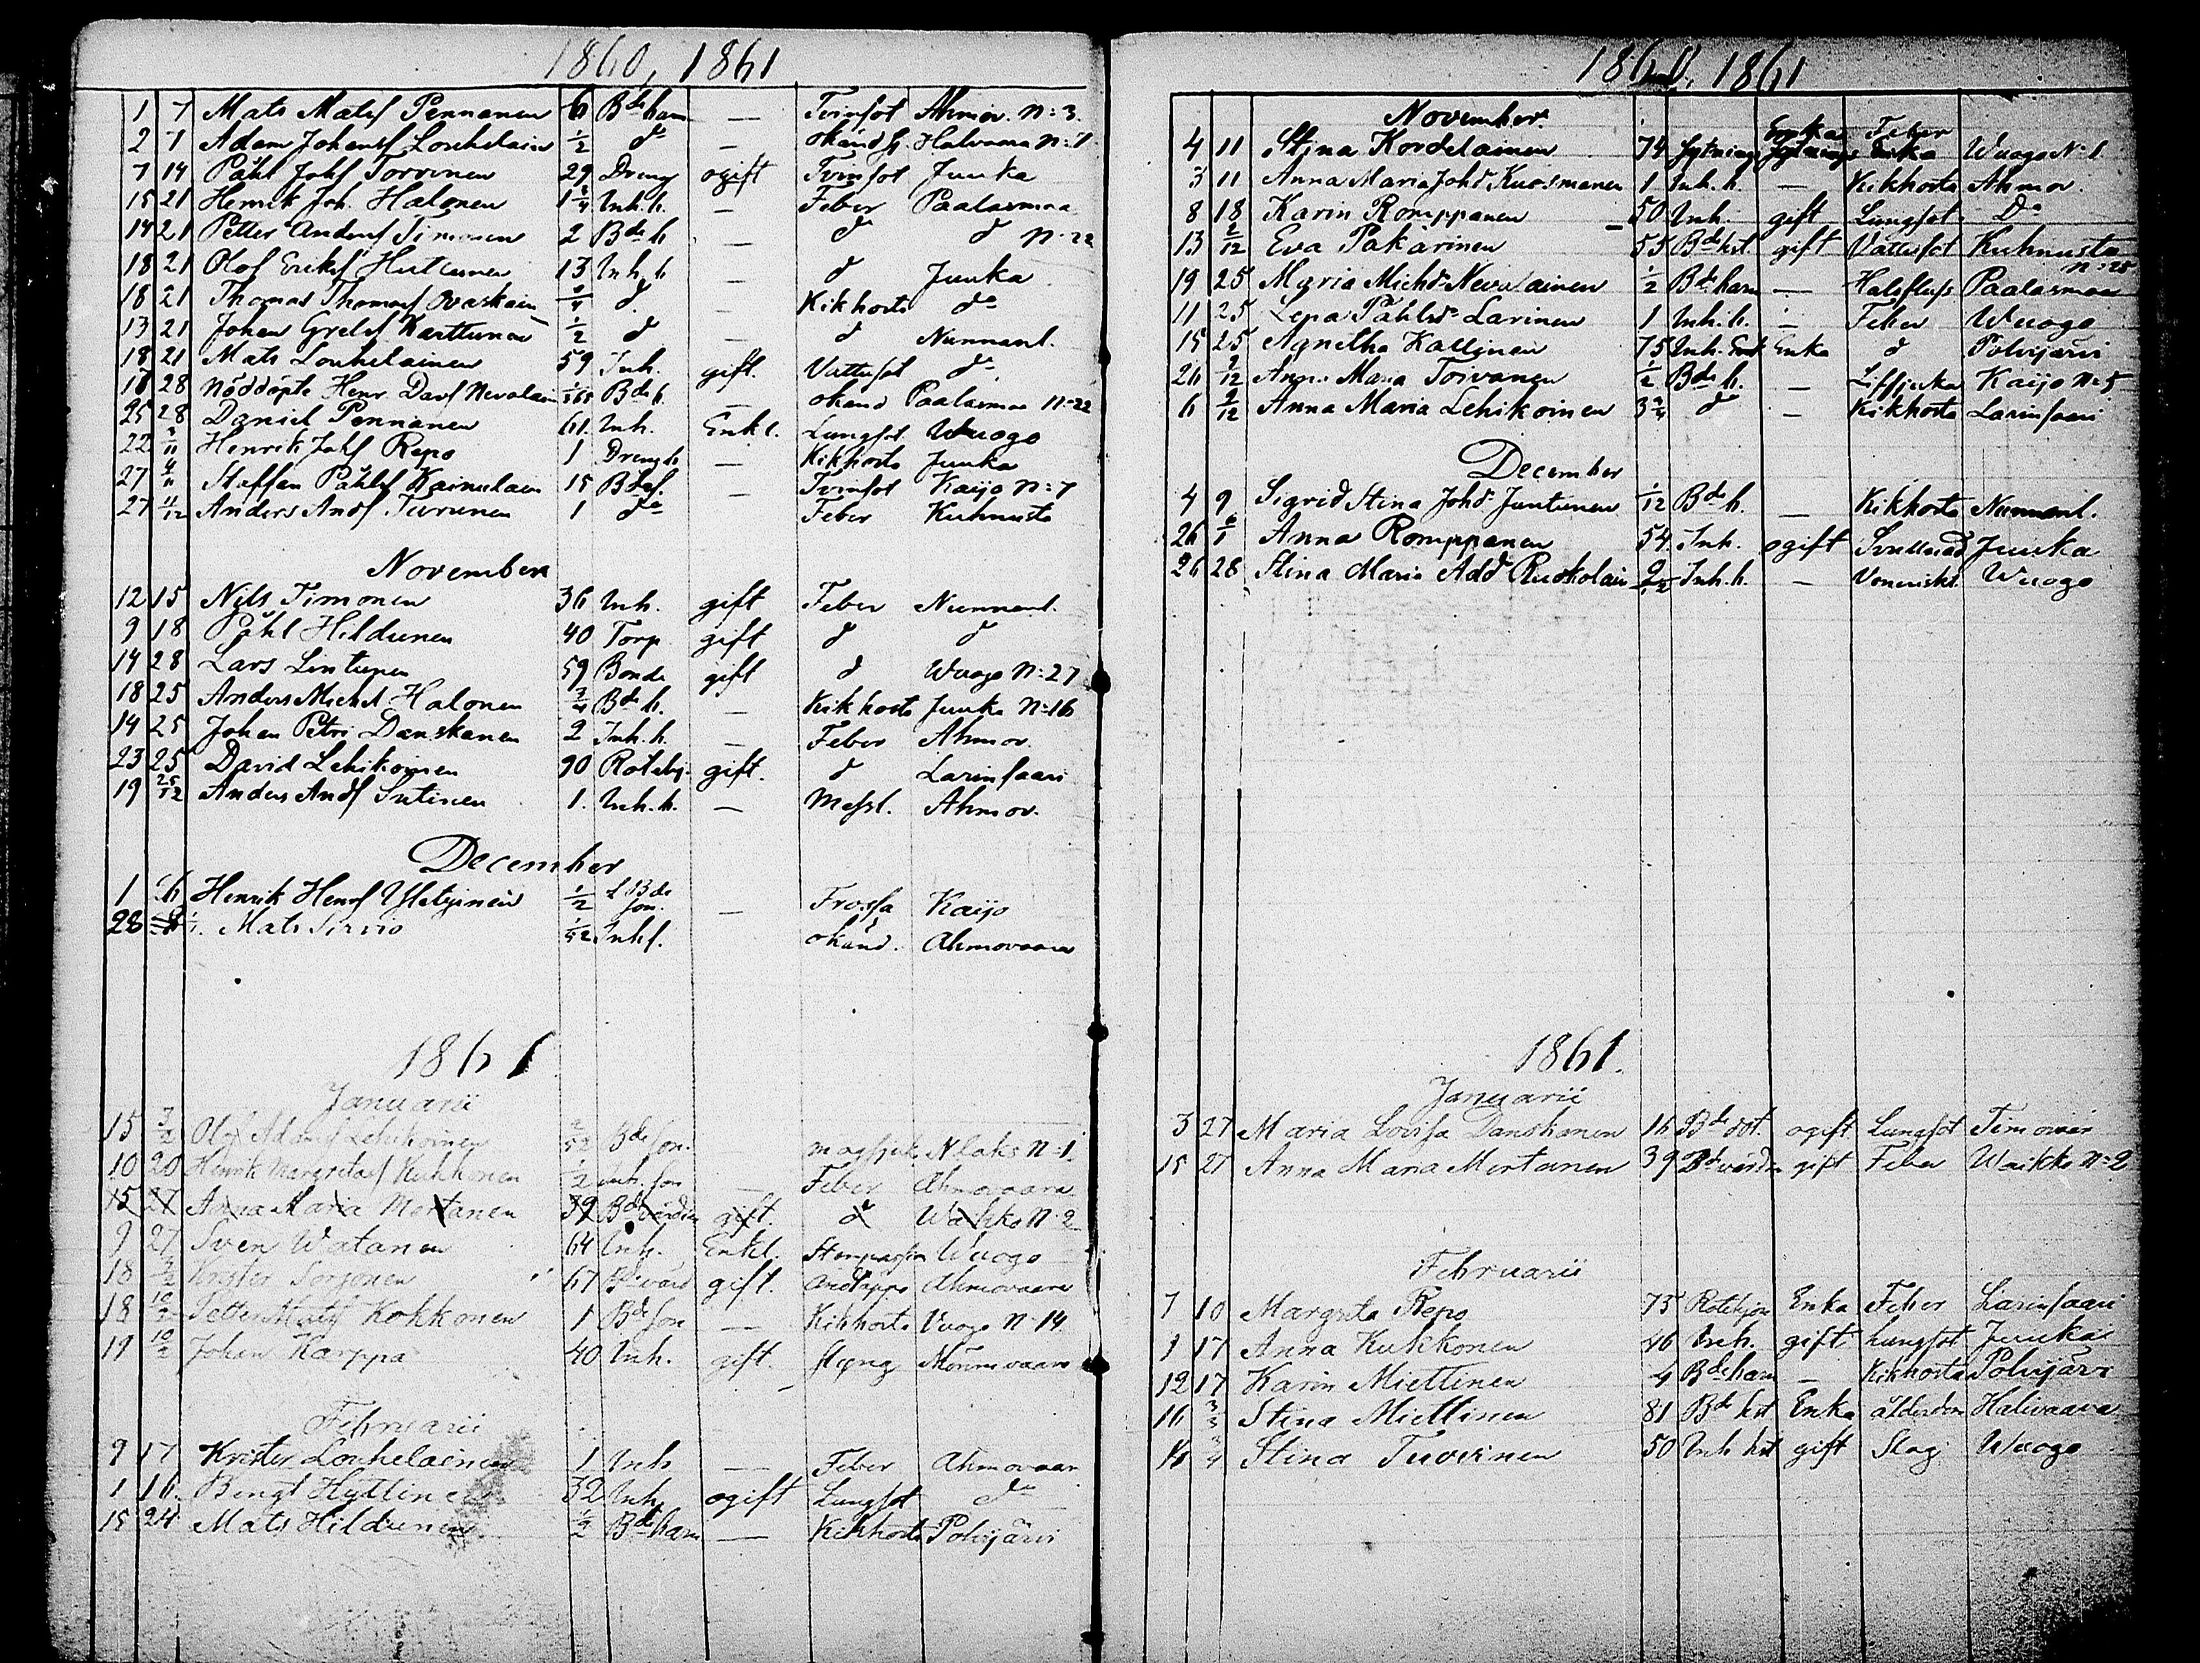 1860, 1861
1 7 Mats Matss Pennanen 6 Bde barn — Tvinsot Ahmov. N:3.
2 7 Adam Johanss Louhelain ½ do — okänd sj. Halvaara N:1
7 14 Påhl Johs Torvinen 29 Dreng ogift Tvinsot Juuka
15 21 Henrik Joh. Halonen Inh. b. — Feber Paalasmaa
14 21 Petter Anderss Timonen 2 Bde b — do do N:22
18 21 Olof Ericss Huttunen 13 Inh. b — d Juuka
18 21 Thomas Thomass Ovaskain d. — Kikhosta do
13 21 Johan Gretes Karttunen ½ d — d Nunnanl.
18 21 Mats Louhelainen 59 Inh. gift. Vattusot do
18 28 Nöddöpte Henr Davs Nevalain 1/365 Bde b. — okänd Paalasmaa N:22
25 28 Daniel Pennanen 61. Inh. Enkl. Lungsot Wuogo
22 Henrik Johs Repo 1 Drengb — Kikhosta Juuka
27 4/11 Staffan Påhls Kainulain 15 Bdes. — Tvinsot Kaijo N:7
27 4/12 Anders Ands Turunen 1 do Feber Kuhnusta
November
12 15 Nils Timonen 36 Inh. gift Feber Nunnanl.
9 18 Påhl Hildunen 40 Torp gift d d
14 28 Lars Lintunen 59 Bonde gift d Wuogo N:27
18 25 Anders Michels Halonen ¾ Bde b. — Kikhosta Juuka N:16
14 25 Johan Petri Danskanen 2 Inh. b. — Feber Ahmov.
23 25 David Lehikoinen 90 Rotehj. gift. d Larinsaari
19 25/12 Anders Ands Sutinen 1. Inh. b. — Messl. Ahmov.
December
1 6 Henrik Henrs Ylatyinen ½ Bde son. — Frossa Kaijo
28 Mats Sirvio 1/52 Inhs. okänd. Ahmovaara
1861
Januarii
15 3/2 Olof Adams Lehikoinen 2/52 Bde son. Nlaks N:1
10 20 Henrik Margretas Kukkonen ½ Inh. son — Feber Ahmovaara
15 27 Anna Maria Mertanen 39 Bdevärdin gift. d Waikko N:2
9 27 Sven Watanen 64 Inh. Enkl. Stenpassion Wuogo
18 3/2 Krister Sorsonen 67 Bdevärd gift. Andtäppa Ahmovaara
18 10/2 Petter Mats Kokkonen 1 Bde son — Kikhosta Vuogo N:14.
19 10/2 Johan Karppa 40 Inh. gift. Styng Mönnivaara
Februarii
9 17 Krister Louhelainen 1 Inh — Feber Ahmovaar
1 16. Bengt Hyttinen 32 Inh. ogift Lungsot do
15 24 Mats Hildunen ½ Bde barn — Kikhosta Polvijärvi
1860, 1861
November.
4 11 Stina Kordelainen 74 Sytning Enka Feber Wuogo N:1.
3 11 Anna Maria Johsd Kuosmanen 1 Inh. b. — Kikhosta Ahmov.
8 18 Karin Romppanen 50 Inh. gift Lungsot Do
13 2/12 Eva Pakarinen 55 Bde hst gift Vattusot Kuhnusta N:25
19 25 Maria Michsd Nevalainen ½ Bde barn — Halsfluss Paalasmaa
11 25 Lena Påhlsdr Larinen 1 Inh. b. — Feber Wuogo
15 25 Agnetha Kallinen 75 Inh. Enk Enka d Polvijärvi
26 9/12 Anna Maria Toivanen ½ Bde b. — Kaijo N:5
6 9/12 Anna Maria Lehikoinen do — Kikhosta Larinsaari
December
4 9 Sigrid Stina Johsd Juntunen 1/12 Bde b. — Kikhosta Nunnanl.
26 6/1 Anna Romppanen 54 Inh. ogift Svullnad Juuka
26 28 Stina Maria Adsd Ruokolain Inh. b. — Venerisk. Wuogo
1861.
Januarii
3 27 Maria Lovisa Danskanen 16 Bde dot. ogift Lungsot Timovaar
15 27 Anna Maria Mertanen 39 Bdevärdin gift Feber Waikko N:2
Februarii
7 10 Margreta Repo 75 Rotehjon Enka Feber Larinsaari
9 17 Anna Kukkonen 46 Inh. gift Lungsot Juuka
12 17 Karin Miettinen 4 Bde barn — Kikhosta Polvijärvi
16 3/3 Stina Miettinen 81 Bde hst Enka ålderdom Halivaara
16 Stina Turvinen 50 Inh hst gift Slag Wuogo